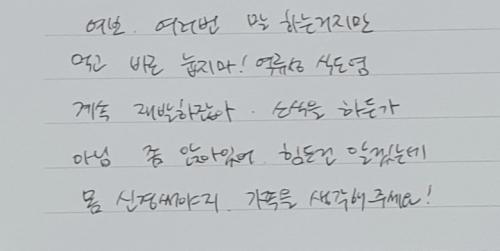 여보. 여러번 말 하는거지만
먹고 바로 눕지마! 역류성 식도염
계속 재발하잖아. 산책을 하든가
아님 좀 앉아있어. 힘든건 알겠는데
몸 신경써야지. 가족을 생각해주세요!